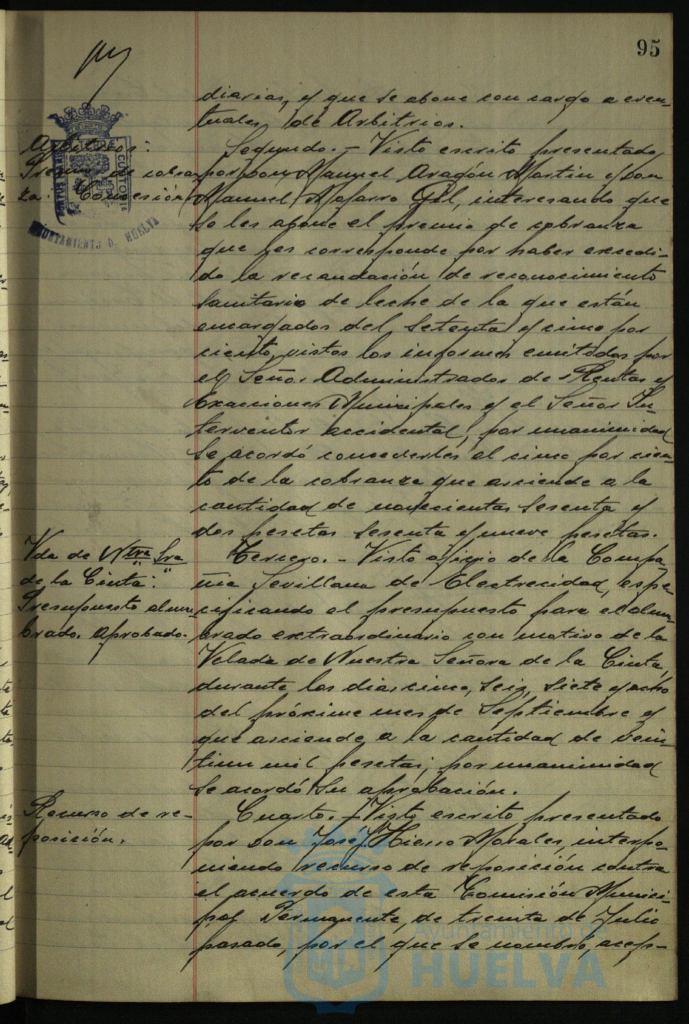 95
diarias, y que se abone con cargo a even-
tuales de Arbitrios.
Arbitrios:
Premio de cobran-
za. Concesión
Segundo.- Visto escrito presentado
por Don Manuel Aragón Martin y Don
Manuel Mojarro Gil, interesando que
se les abone el premio de cobranza
que les corresponde por haber excedi-
do la recaudación de reconocimiento
sanitario de leche de la que están
encargados del setenta y cinco por
ciento, vistos los informes emitidos por
el Señor Administrador de Rentas y
Exacciones Municipales y el Señor In-
terventor accidental, por unanimidad
se acordó concederles el cinco por cien-
to de la cobranza que asciende a la
cantidad de novecientas sesenta y
dos pesetas sesenta y nueve pesetas.
Vda de Ntra Sra
de la Cinta:
Presupuesto alum-
brado. Aprobado.
Tercero.- Visto oficio de la Compa-
ñia Sevillana de Electrecidad, espe-
cificando el presupuesto para el alum-
brado extraordinario con motivo de la
Velada de Nuestra Señora de la Cinta,
durante los dias cinco, seis, siete y ocho
del próximo mes de Septiembre y
que asciende a la cantidad de vein-
tiun mil pesetas; por unanimidad
se acordó su aprobación.
Recurso de re-
posición.
Cuarto.- Visto escrito presentado
por Don José Hierro Morales, interpo-
niendo recurso de reposición contra
el acuerdo de esta Comisión Munici-
pal Permanente, de treinta de Julio
pasado, por el que se nombró, acep-
AYUNTAMIENTO D. HUELVA
Ayuntamiento de
HUELVA